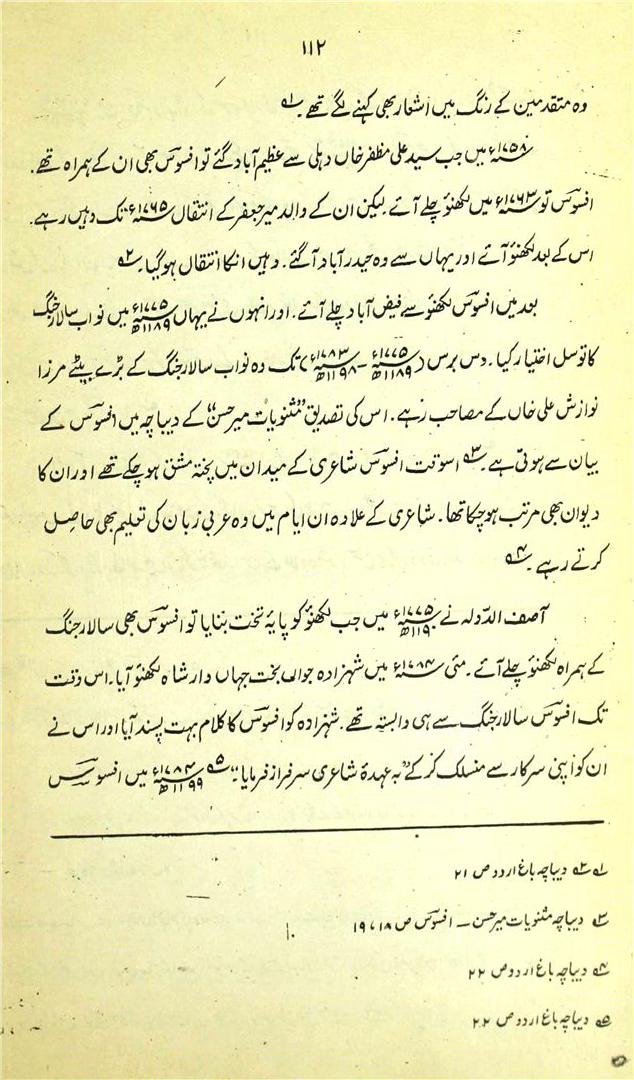 ۱۱۲
وہ متقدمین کے رنگ میں اشعار بھی کہنے لگے تھے۔ ؎۱
۱۷۵۸ء میں جب سید علی مظفر خاں دہلی سے عظیم آباد گئے تو افسوسؔ بھی ان کے ہمراہ تھے۔
افسوسؔ تو ۱۷۶۳ء میں لکھنؤ چلے آئے۔ لیکن ان کے والد میر جعفر کے انتقال ۱۷۶۵ء تک وہیں رہے۔
اس کے بعد لکھنؤ آئے اور یہاں سے وہ حیدر آباد آ گئے۔ وہیں انکا انتقال ہو گیا۔ ؎۲
بعد میں افسوسؔ لکھنؤ سے فیض آباد چلے آئے۔ اور انہوں نے یہاں ۱۷۷۵ء ۱۱۸۹ھ میں نواب سالار جنگ
کا توسل اختیار کیا۔ دس برس (۱۷۷۵ء ۱۱۸۹ھ – ۱۷۸۳ء ۱۱۹۸ھ) تک وہ نواب سالار جنگ کے بڑے بیٹے مرزا
نوازش علی خاں کے مصاحب رہے۔ اس کی تصدیق "مثنویات میر حسن" کے دیباچہ میں افسوسؔ کے
بیان سے ہوتی ہے۔ ؎۳ اسوقت افسوسؔ شاعری کے میدان میں پختہ مشق ہو چکے تھے اور ان کا
دیوان بھی مرتب ہو چکا تھا۔ شاعری کے علاوہ ان ایام میں وہ عربی زبان کی تعلیم بھی حاصل
کرتے رہے۔ ؎۴
آصف الدّولہ نے ۱۷۷۵ء ۱۱۹۰ھ میں جب لکھنؤ کو پایۂ تخت بنایا تو افسوسؔ بھی سالار جنگ
کے ہمراہ لکھنؤ چلے آئے۔ مئی ۱۷۸۴ء میں شہزادہ جوالی بخت جہاں دار شاہ لکھنؤ آیا۔ اس وقت
تک افسوسؔ سالار جنگ سے ہی وابستہ تھے۔ شہزادہ کو افسوسؔ کا کلام بہت پسند آیا اور اس نے
ان کو اپنی سرکار سے منسلک کر کے "بہ عہدۂ شاعری سرفراز فرمایا"۔ ؎۵ ۱۷۸۴ء ۱۱۹۹ھ میں افسوسؔ
؎۱ ؎۲ دیباچہ باغ اردو ص ۲۱
؎۳ دیباچہ مثنویات میر حسن – افسوسؔ ص ۱۸، ۱۹
؎۴ دیباچہ باغ اردو ص ۲۲
؎۵ دیباچہ باغ اردو ص ۲۲